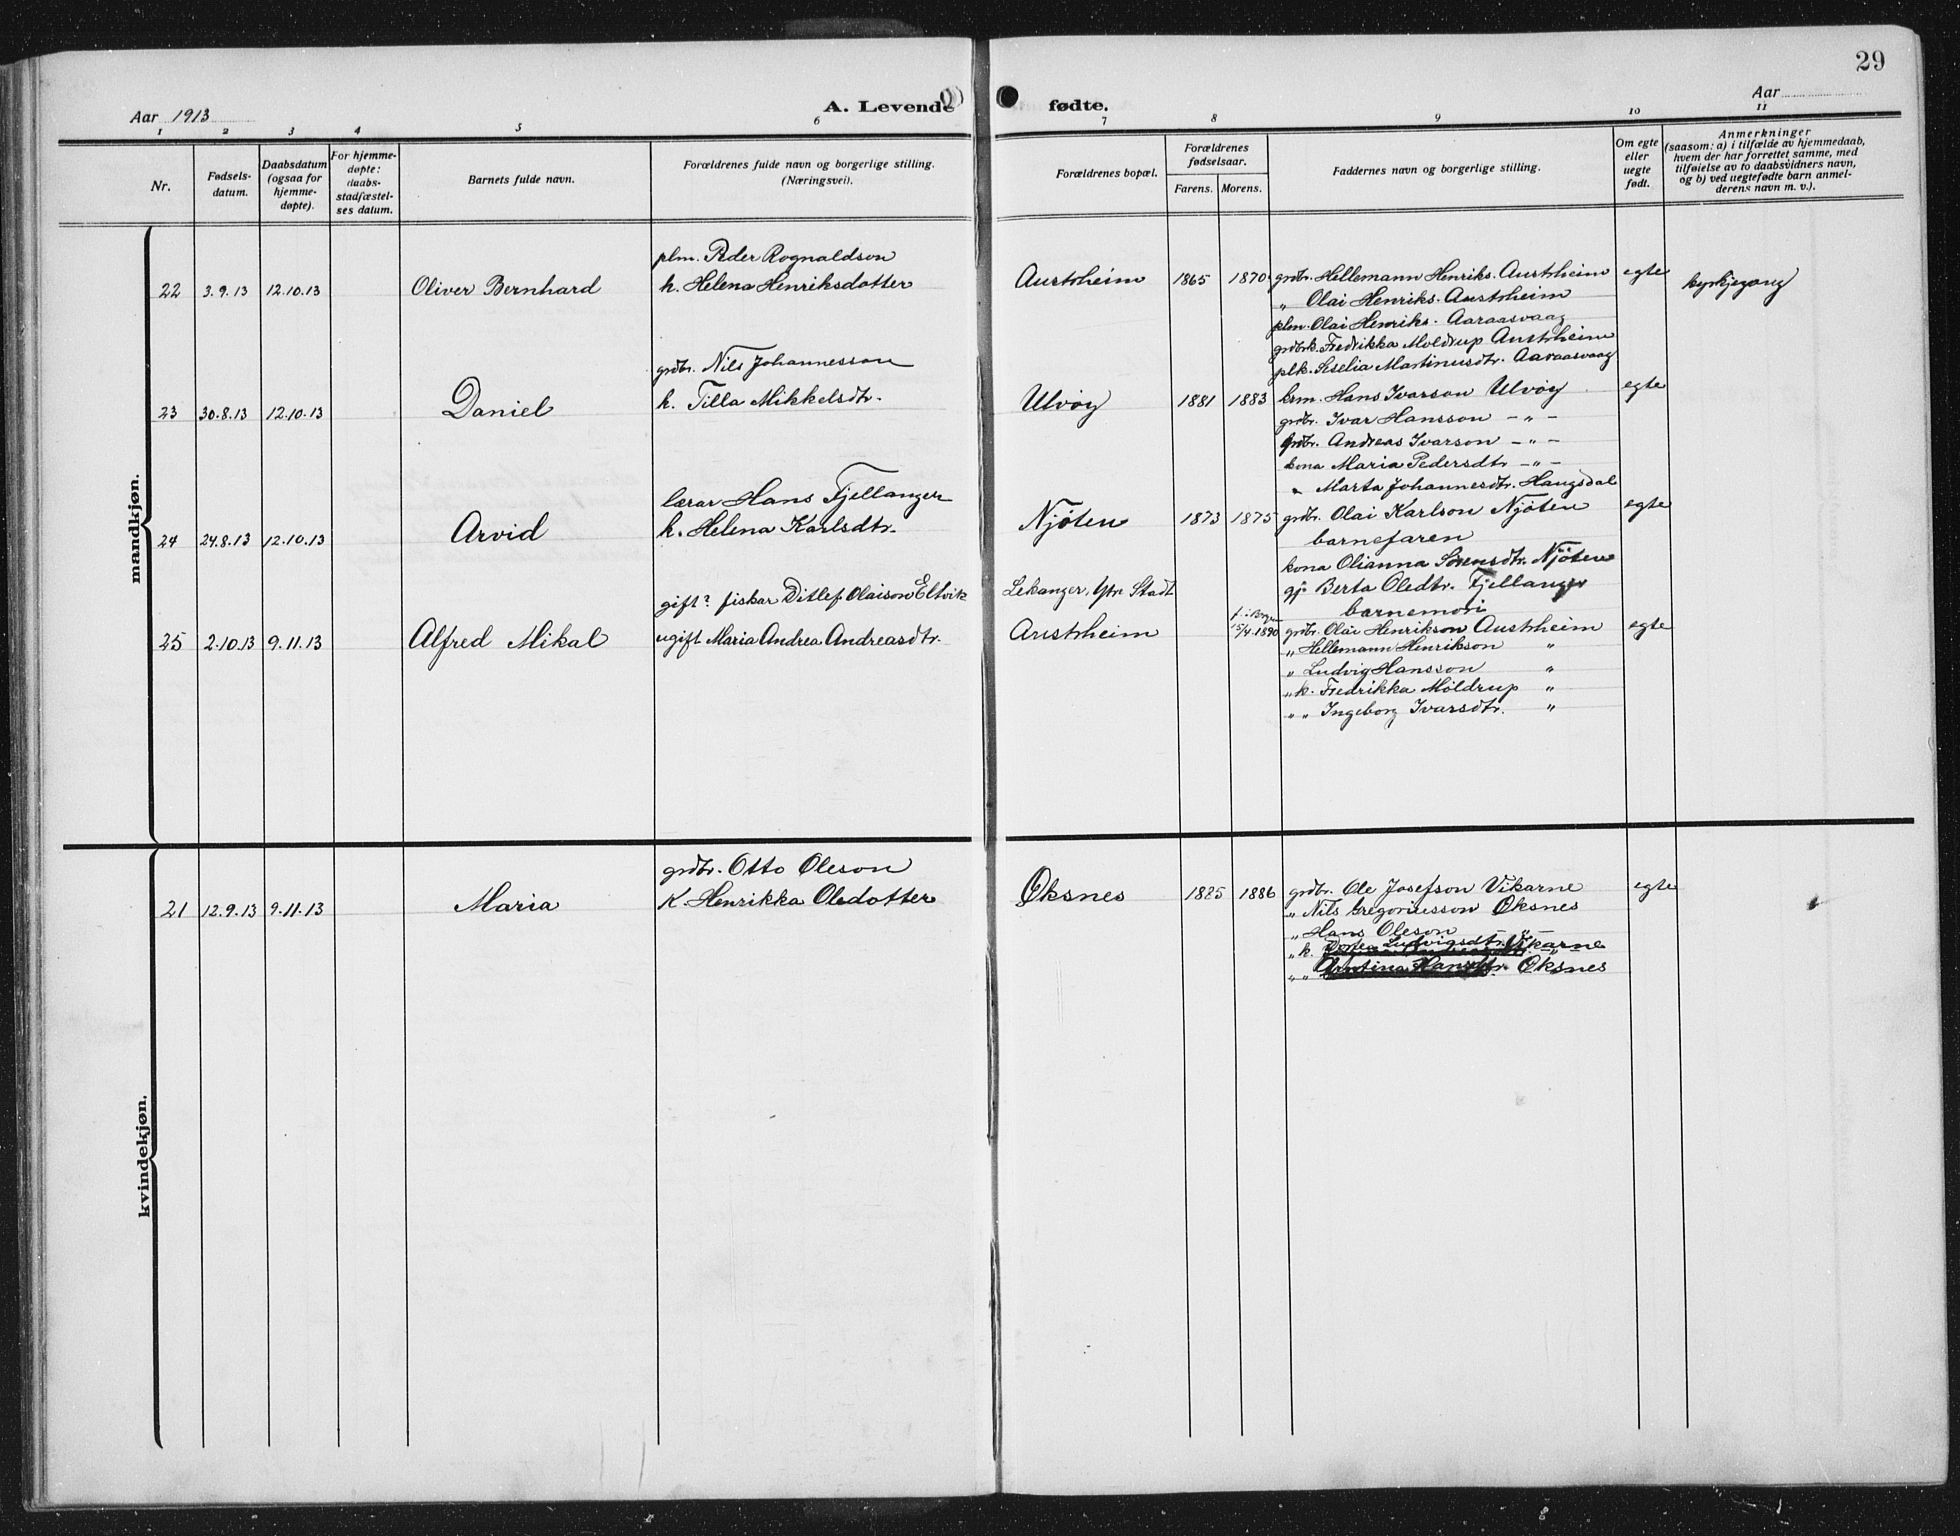 29
Aar 1913
A. Levende fødte.
Aar
1 2 3 4 5 6 7 8 9 10 11
Nr.
Fødsels-
datum.
Daabsdatum
(ogsaa for
hjemme-
døpte).
For hjemme-
døpte:
daabs-
stadfæstel-
ses datum.
Barnets fulde navn.
Forældrenes fulde navn og borgerlige stilling.
(Næringsvei).
Forældrenes bopæl.
Forældrenes
fødselsaar.
Farens. Morens.
Faddernes navn og borgerlige stilling.
Om egte
eller
uegte
født.
Anmerkninger
(saasom: a) i tilfælde av hjemmedaab,
hvem der har forrettet samme, med
tilføielse av to daabsvidners navn,
og b) ved uegtefødte barn anmel-
derens navn m. v.).
mandkjøn.
plm. Peder Rognaldson
22 3.9.13 12.10.13 Oliver Bernhard k. Helena Henriksdotter Austrheim 1865 1870 grdbr. Hellemann Henriks. Austrheim egte kyrkjegang
„ Olai Henriks. Austrheim
plm. Olai Henriks. Aaraasvaag
grdbrk. Fredrikka Moldrup Austrheim
plk. Seselia Martinusdtr. Aaraasvaag
grdbr. Nils Johannesson
23 30.8.13 12.10.13 Daniel k. Tilla Mikkelsdtr. Ulvøy 1881 1883 krm. Hans Ivarson Ulvøy egte
grdbr. Ivar Hansson – „ –
grdbr. Andreas Ivarson – „ –
kona Maria Pedersdtr – „ –
„ Marta Johannesdtr. Haugsdal
lærar Hans Fjellanger
24 24.8.13 12.10.13 Arvid k. Helena Karlsdtr. Njøten 1873 1875 grdbr. Olai Karlson Njøten egte
barnefaren
kona Olianna Sørensdtr. Njøten
gj. Berta Oledtr. Fjellanger
barnemori
gift? fiskar Ditlef Olaison Eltvik Lekanger, ytr. Stadt
25 2.10.13 9.11.13 Alfred Mikal ugift Maria Andrea Andreasdtr. Austrheim 15/4.1890 grdbr. Olai Henrikson Austrheim egte
„ Hellemann Henrikson „
„ Ludvig Hansson „
„ k. Fredrikka Möldrup „
„ „ Ingeborg Ivarsdtr. „
kvindekjøn.
grdbr. Otto Oleson
21 12.9.13 9.11.13 Maria K. Henrikka Oledotter Øksnes 1885 1886 grdbr. Ole Josefson Vikarne egte
„ Nils Gregoriusson Øksnes
„ Hans Oleson – „ –
„ k. Ludvigsdtr. Vikarne
„ „ Hansdtr. Øksnes